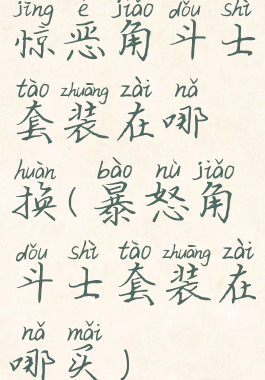 jīng è jiǎo dǒu shì
惊恶角斗士
tào zhuāng zài nǎ
套装在哪
huàn bào nù jiǎo
换(暴怒角
dǒu shì tào zhuāng zài
斗士套装在
nǎ mǎi
哪买)